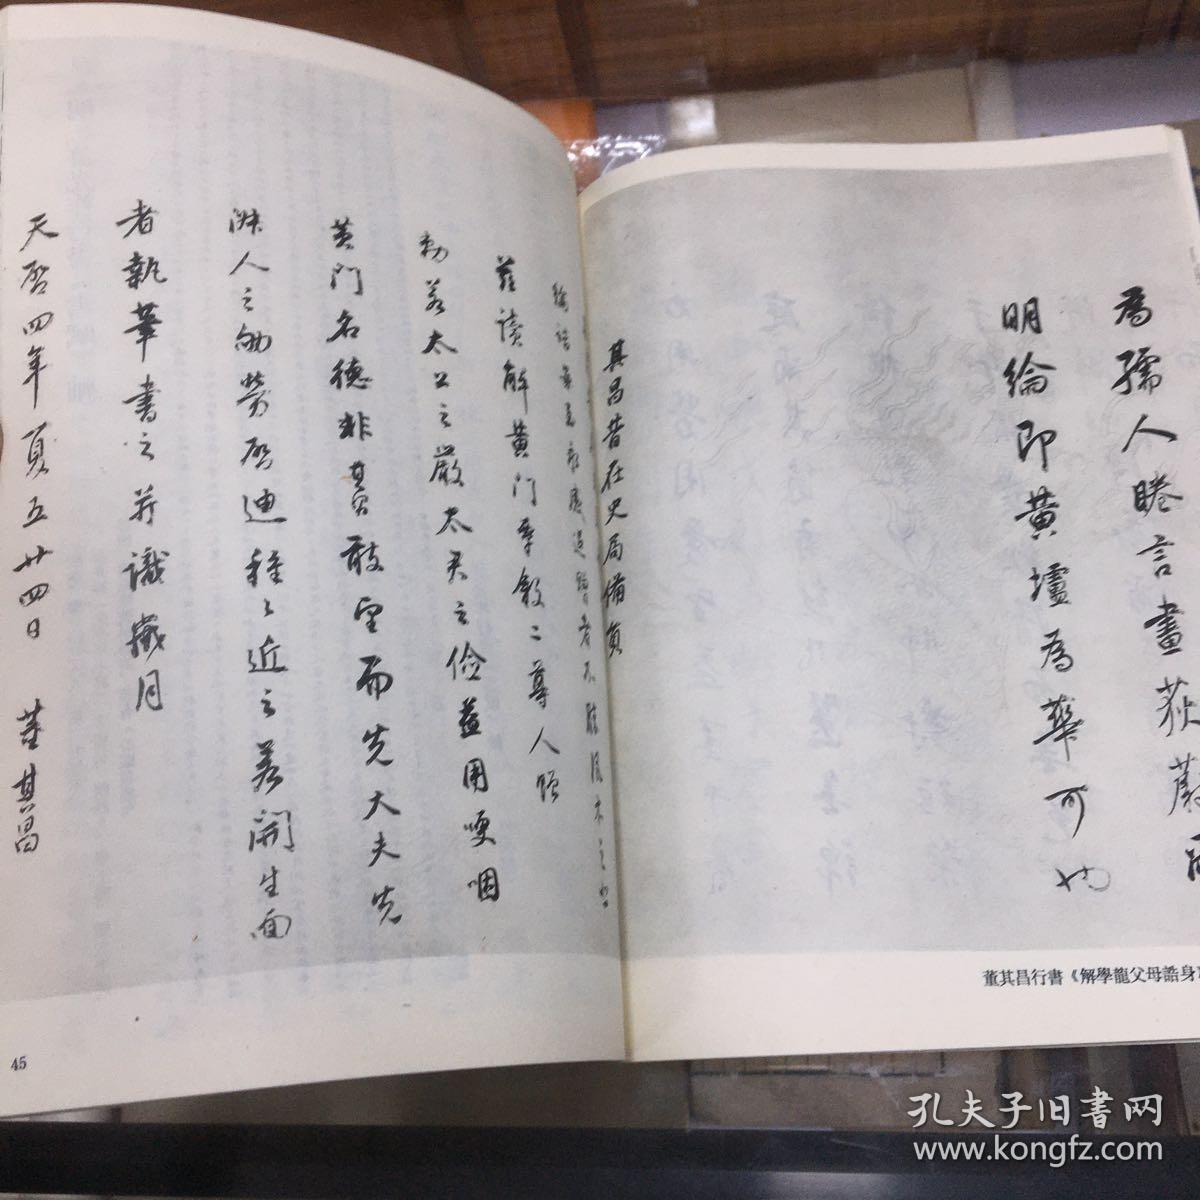 為孺人睠言畫荻蔚爾
明綸即黃壚為華可也
其昌昔在史局備員
茲讀解黃門奉敕二尊人贈
勅若太公之嚴太君之儉並用哽咽
黃門名德非其敢望而先大夫先
淑人之劬勞啓迪種種近之若開生面
者執筆書之并識歲月
天啓四年夏五廿四日 董其昌
董其昌行書《解學龍父母誥身》
45
孔夫子旧書网
www.kongfz.com